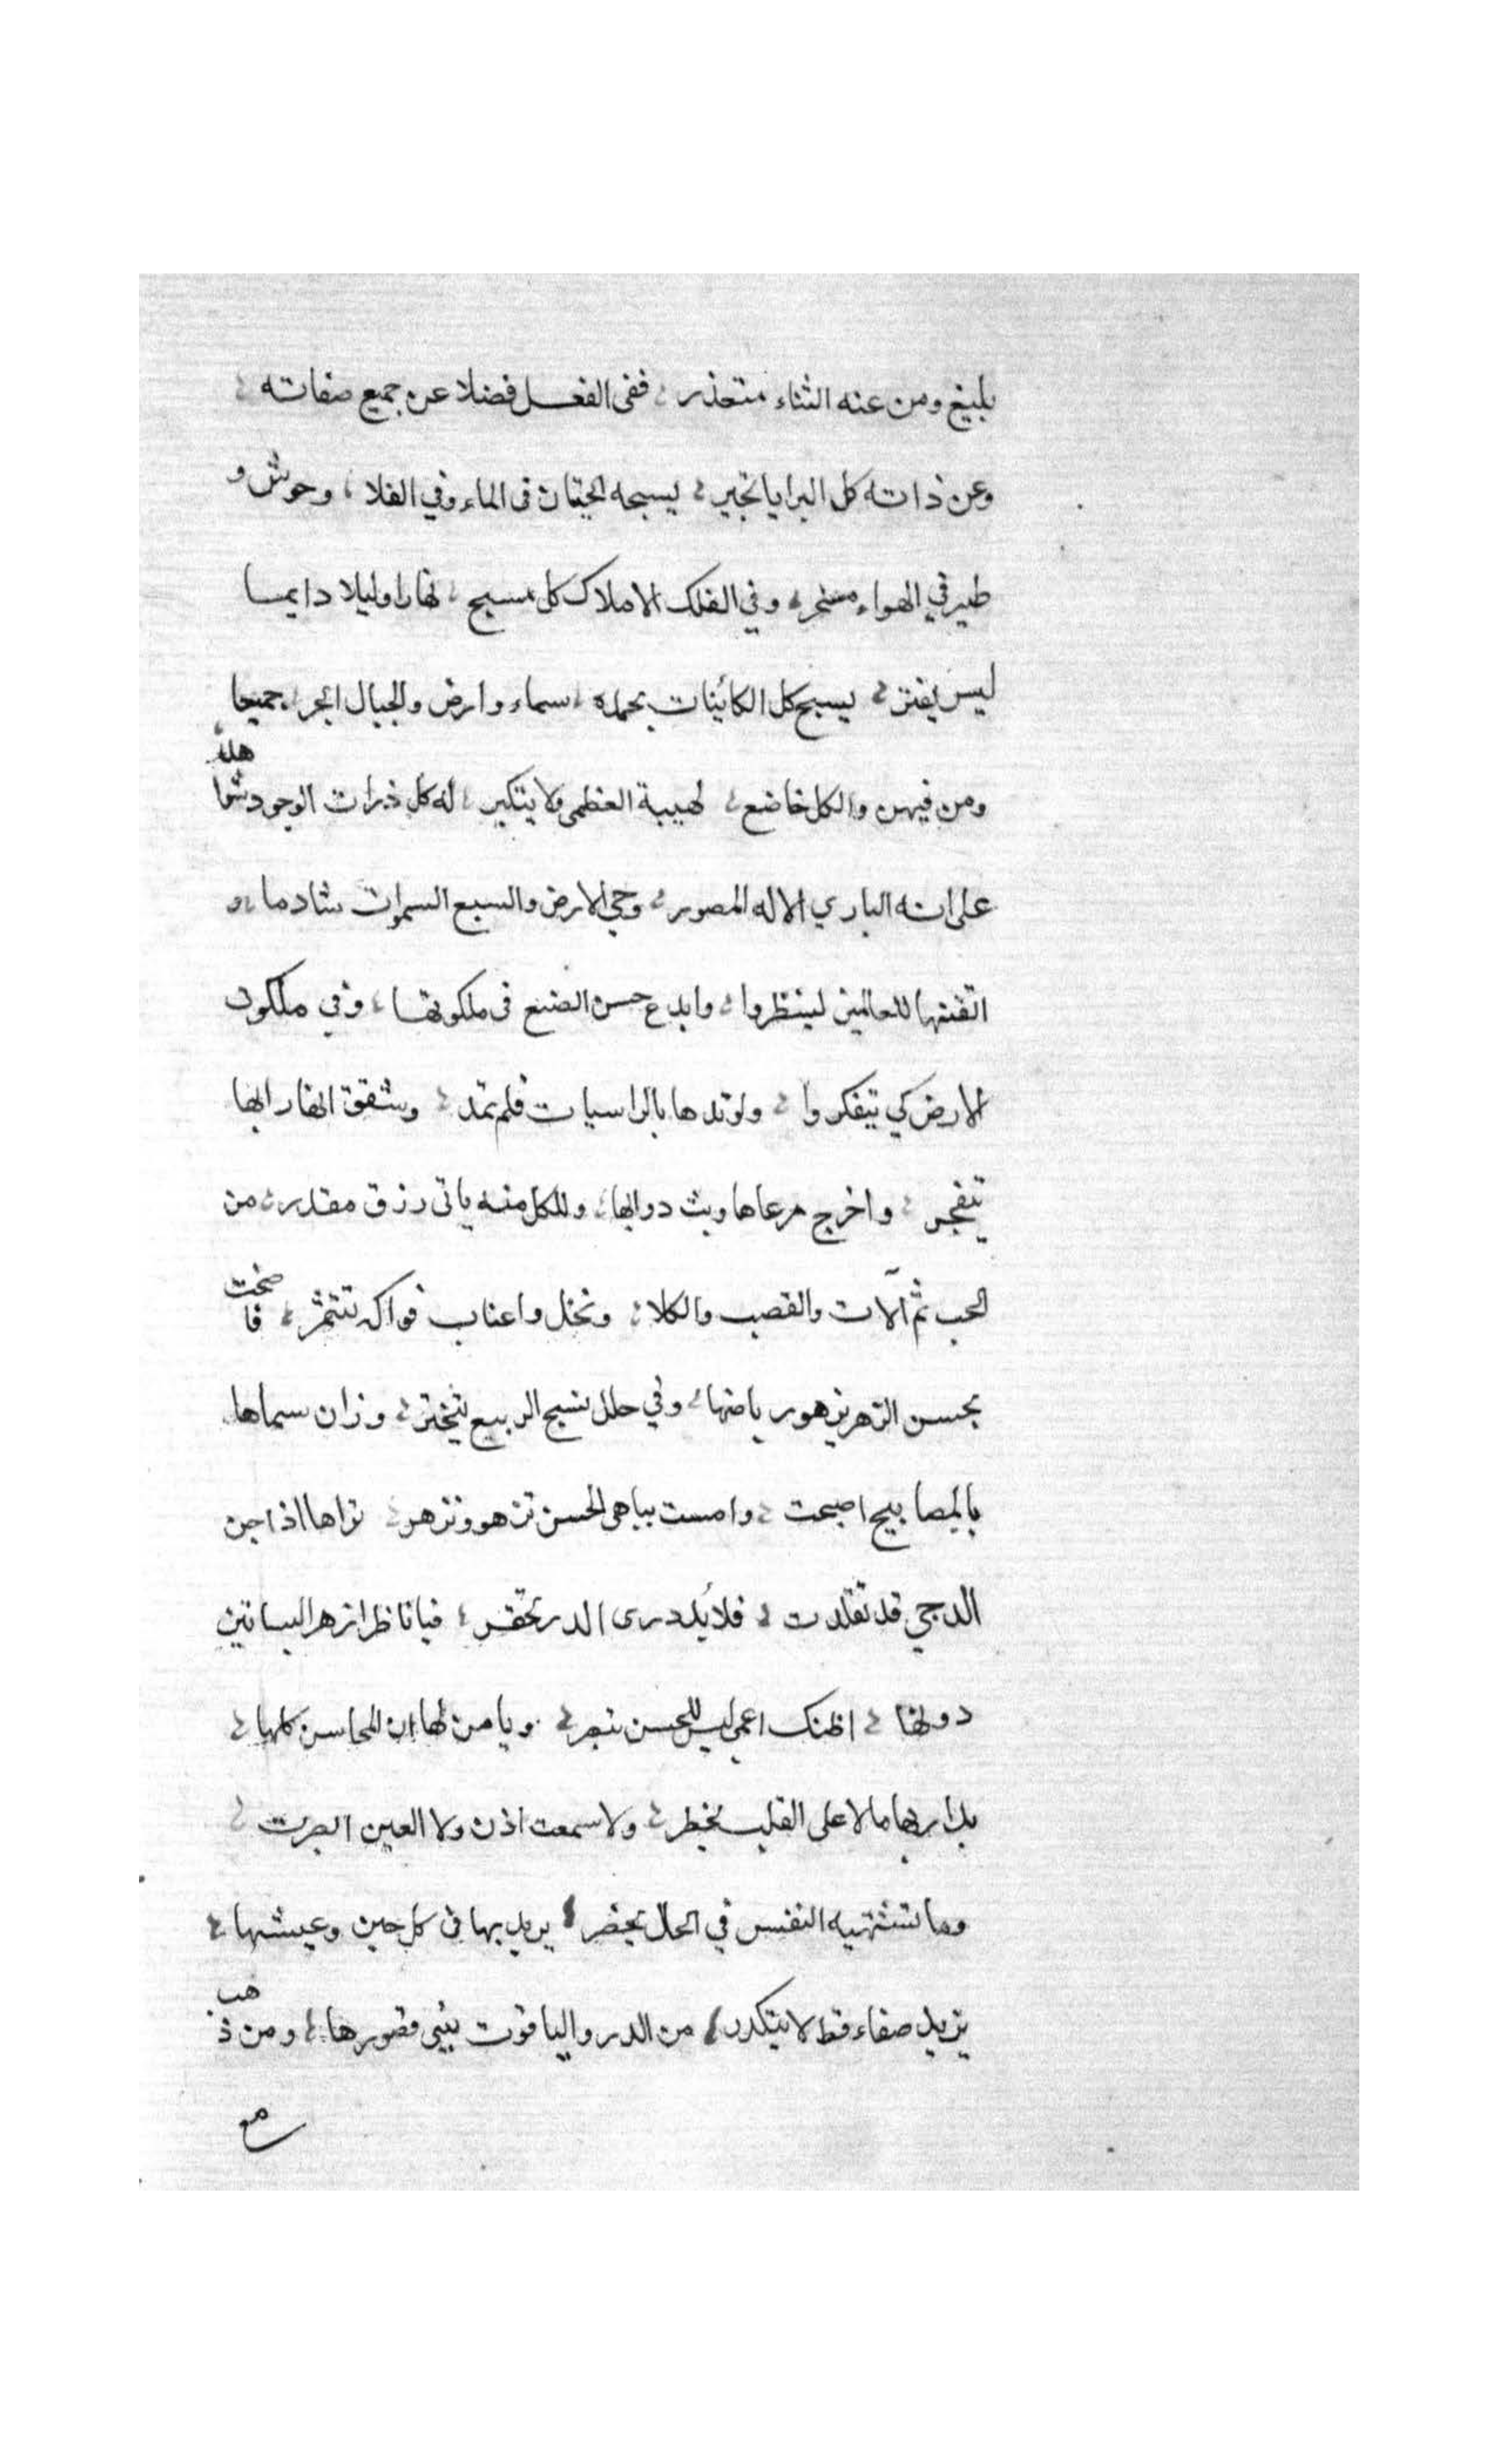 بليغ ومن عنه الثناء متعذر ؛ ففى الفعل فضلا عن جميع صفاته ؛
وعن ذاته كل البرايا تحير ؛ يسبحه الحيتان فى الماء وفي الفلا ؛ وحوش و
طير في الهواء مسخر ؛ وفي الفلك الاملاك كل مسبح ؛ نهارا وليلا دايما
ليس يفتر ؛ يسبح كل الكائنات بحمده ؛ سماء وارض والجبال ابحر ؛ جميعا
ومن فيهن والكل خاضع ؛ لهيبة العظمى ولا يتكبر ؛ له كل ذرات الوجود شواهد
على انه الباري الاله المصور ؛ وحي الارض والسبع السموات شادها ؛ و
اتقنها للعالمين لينظروا ؛ وابدع حسن الصنع فى ملكوتها ؛ وفي ملكوت
الارض كي يتفكروا ؛ ولوتدها بالراسيات فلم تمد ؛ وشقق انهارا بها
تتفجر ؛ واخرج مرعاها وبث دوابها ؛ وللكل منه ياتى رزق مقدر ؛ من
الحب ثم آلات والقصب والكلا ؛ ونخل واعناب فواكه تتثمر ؛ فاضحت
بحسن الزهر يزهو رياضها ؛ وفي حلل نسج الربيع تبختر ؛ وزان سماها
بالمصابيح اصبحت ؛ وامست بباهى الحسن تزهو وتزهر ؛ تراها اذا جن
الدجي قد تقلدت ؛ قلائد درى الدر تحقر ؛ فيا ناظرا زهر البساتين
دونها ؛ اظنك اعمى ليس للحسن تبصر ؛ ويا من لها ان المحاسن كلها ؛
بدار بها ما لا على القلب يخطر ؛ ولا سمعت اذن ولا العين ابصرت ؛
وما تشتهيه النفس في الحال يحضر ؛ يريد بها فى كل حين وعيشها ؛
يزيد صفاء قط لا يتكدر ؛ من الدر والياقوت يبنى قصورها ؛ ومن ذهب
مع